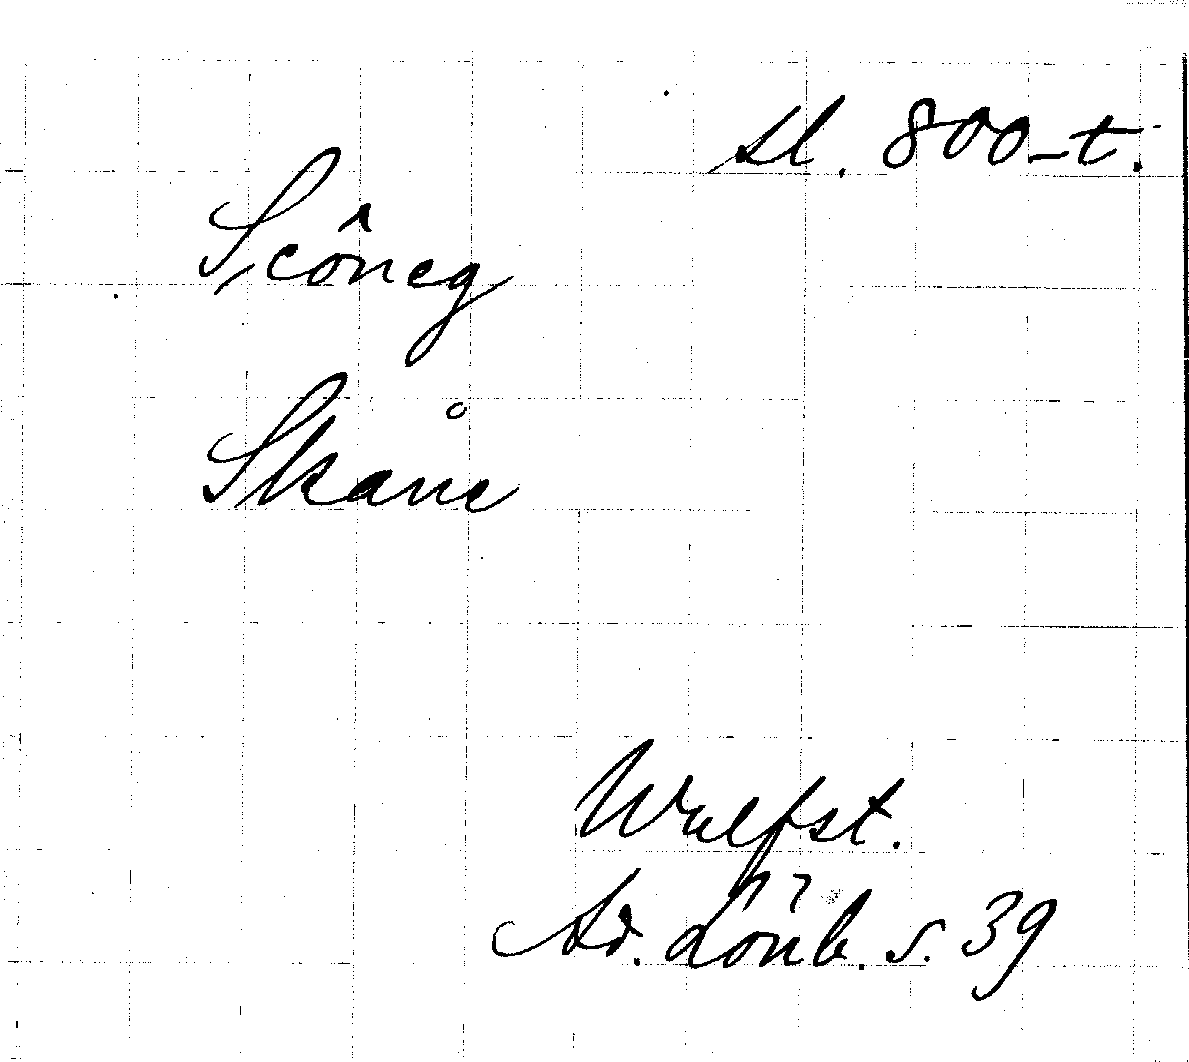 sl. 800-t.
Scôneg
Skåne
Wulfst.
s. 39